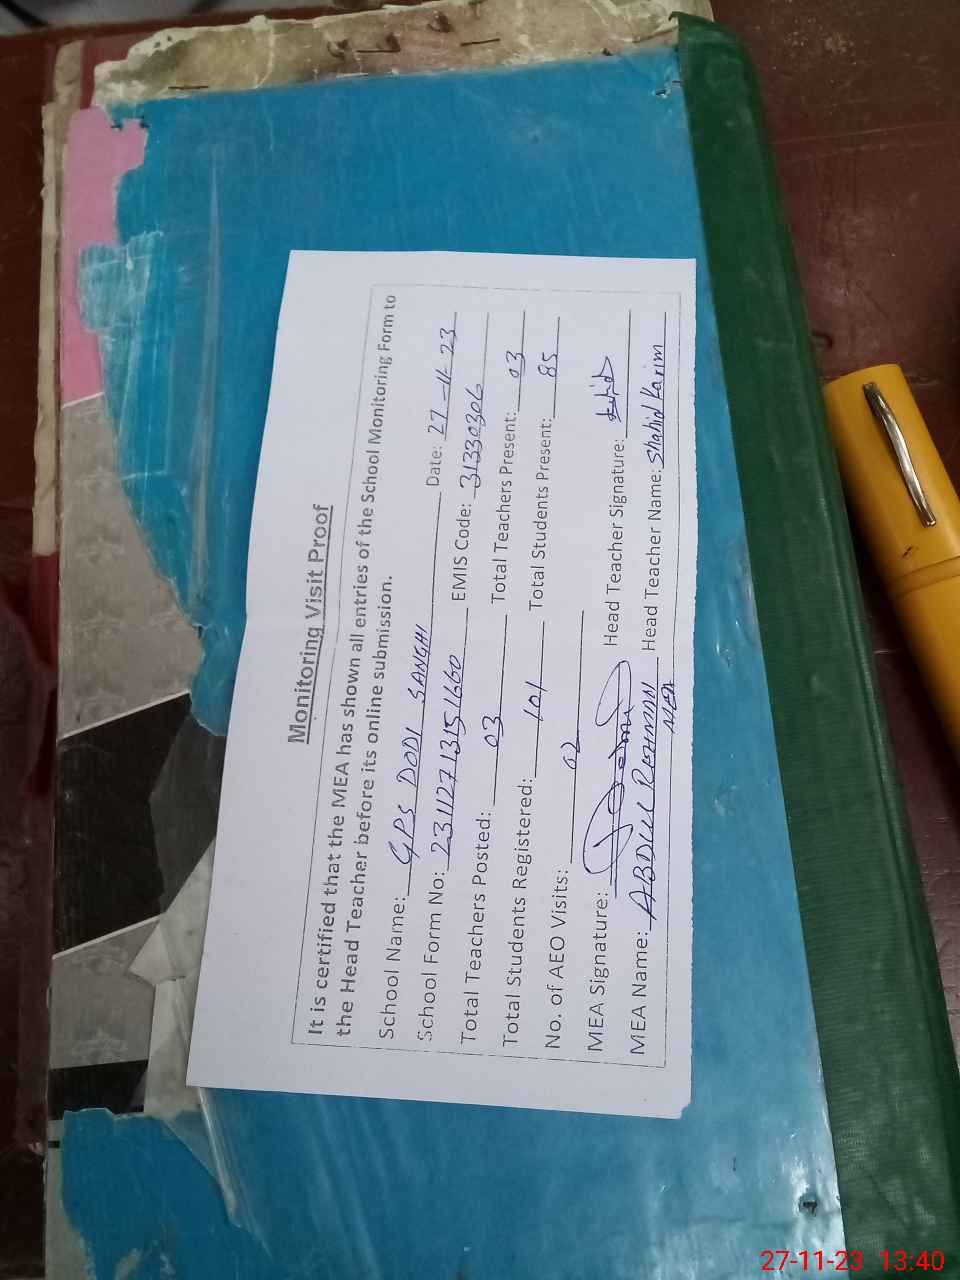 Monitoring Visit Proof
It is certified that the MEA has shown all entries of the School Monitoring Form to
the Head Teacher before its online submission.
School Name: GPS DODI SANGHI Date: 27-11-23
School Form No: 231112713151660 EMIS Code: 31330306
Total Teachers Posted: 03 Total Teachers Present: 03
Total Students Registered: 101 Total Students Present: 85
No. of AEO Visits: 02
MEA Signature: Head Teacher Signature:
MEA Name: ABDUL REHMAN Head Teacher Name: Shahid Karim
MEA
27-11-23 13:40